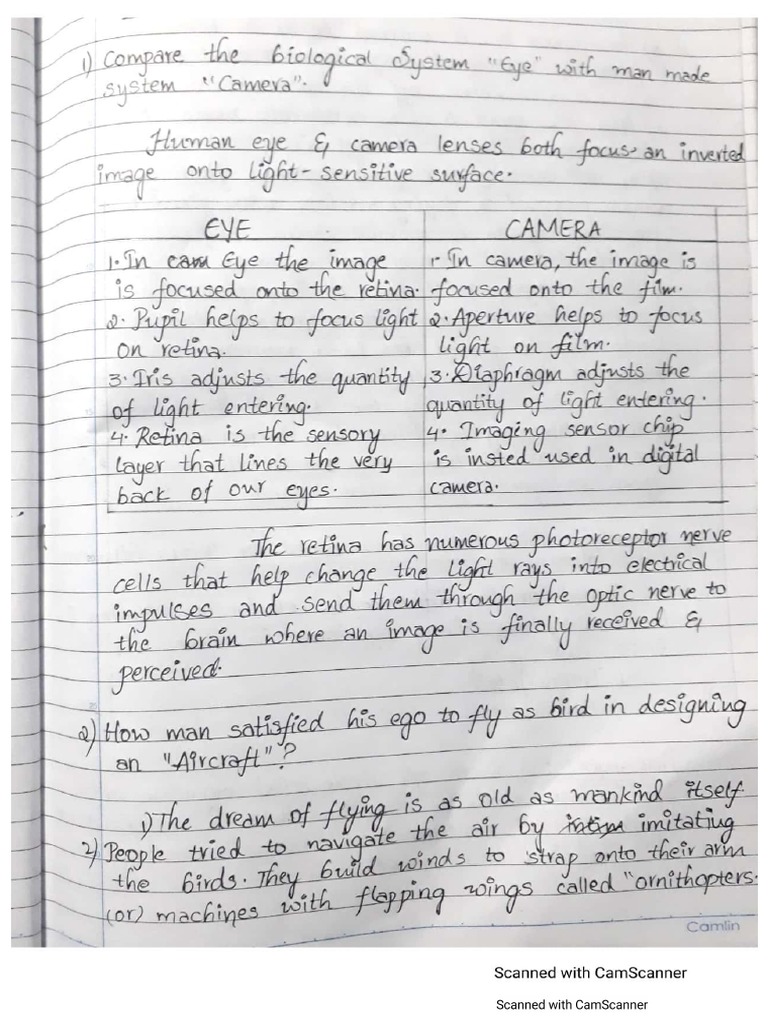 1) Compare the biological System "Eye" with man made
system "Camera".
Human eye & camera lenses both focus an inverted
image onto light-sensitive surface.
EYE
1. In cam Eye the image
is focused onto the retina.
2. Pupil helps to focus light
on retina.
3. Iris adjusts the quantity
of light entering.
4. Retina is the sensory
layer that lines the very
back of our eyes.
CAMERA
1. In camera, the image is
focused onto the film.
2. Aperture helps to focus
light on film.
3. Diaphragm adjusts the
quantity of light entering.
4. Imaging sensor chip
is insted used in digital
camera.
The retina has numerous photoreceptor nerve
cells that help change the light rays into electrical
impulses and send them through the optic nerve to
the brain where an image is finally received &
perceived.
2) How man satisfied his ego to fly as bird in designing
an "Aircraft"?
1) The dream of flying is as old as mankind itself
2) People tried to navigate the air by imitating
the birds. They build winds to strap onto their arm
(or) machines with flapping wings called "ornithopters.
Camlin
Scanned with CamScanner
Scanned with CamScanner